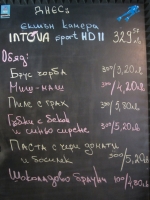 ДНЕС:
екшън камера
INTOVA sport HD II 329.50
Обяд:
Боб чорба 300/3,20лв
Миш-маш 300/4,20лв
Пиле с грах 300/3,80лв
Гъбки с бекон
и синьо сирене 300/5,20лв
Паста с чери домати
и босилек 300/5,20лв
Шоколадово брауни 100/4,80лв